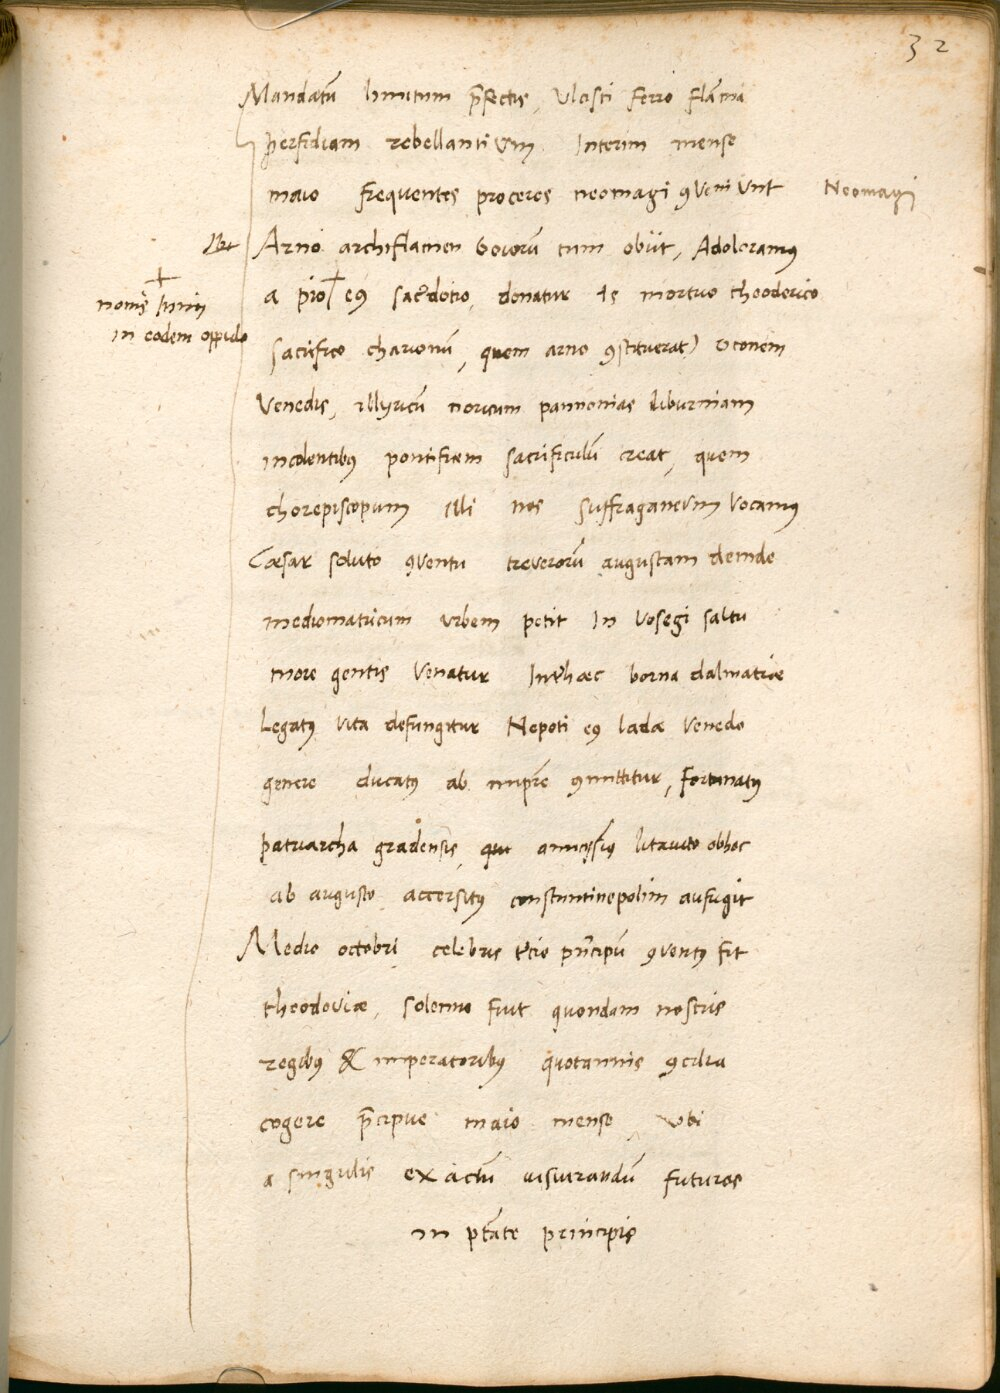 32
Mandatū limitum p̄fectis, Ulcisti ferro flāma
perfidiam rebellantium Interim mense
maio frequentes proceres neomagi ꝯveniunt
Neomagi
Arno archiflamen boiorū cum obiit, Adoloramus
a pio eꝰ sacerdotio, donatur is mortuo theoderico
nonis Junij
in eodem oppido
sacrifico charionū, quem arno ꝯstituerat) oconem
Venedis, illyricū noricum pannonias liburniam
incolentibꝰ pontificem sacrificulū creat, quem
chorepiscopum illi nos suffraganeum vocamꝰ
Cæsar soluto ꝯventu treverorū augustam deinde
mediomatricum urbem petit In vosegi saltu
more gentis venatur Interhæc borna dalmatiæ
Legatꝰ vita defungitur Nepoti eꝰ ladæ venedo
genere ducatꝰ ab imp̄re ꝯmittitur, fortunatꝰ
patriarcha gradensis, amicissimꝰ litavito obhoc
ab augusto accersitꝰ constantinepolim aufugit
Medio octobri celebris tercio pn̄cipū ꝯventꝰ fit
theodoviæ, solenne fuit quondam nostris
regibꝰ & imperatoribꝰ quotannis ꝯcilia
cogere p̄cipue maio mense ubi
a singulis exactū iusiurandū futuros
in ptāte principis